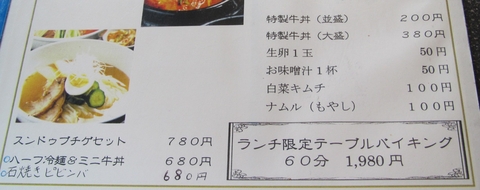 特製牛丼（並盛） ２００円
特製牛丼（大盛） ３８０円
生卵１玉 50円
お味噌汁１杯 50円
白菜キムチ １００円
ナムル（もやし） １００円
スンドゥブチゲセット ７８０円
ハーフ冷麺＆ミニ牛丼 ６８０円
石焼きビビンバ 680円
ランチ限定テーブルバイキング
６０分 1,980円